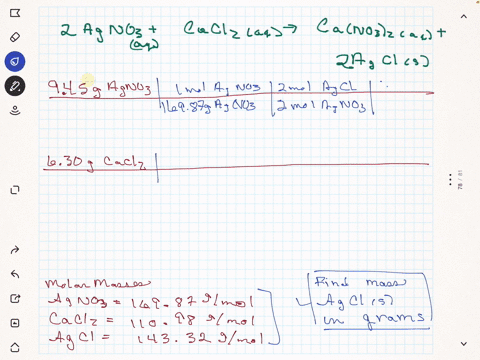 2 AgNO3 (aq) + CaCl2 (aq) → Ca(NO3)2 (aq) +
2AgCl (s)
9.45g AgNO3 | 1mol AgNO3 | 2mol AgCl |
169.87g AgNO3 | 2mol AgNO3
6.30g CaCl2
Molar Masses
AgNO3 = 169.87 g/mol
CaCl2 = 110.98 g/mol
AgCl = 143.32 g/mol
Find mass
AgCl (s)
in grams
78 / 81